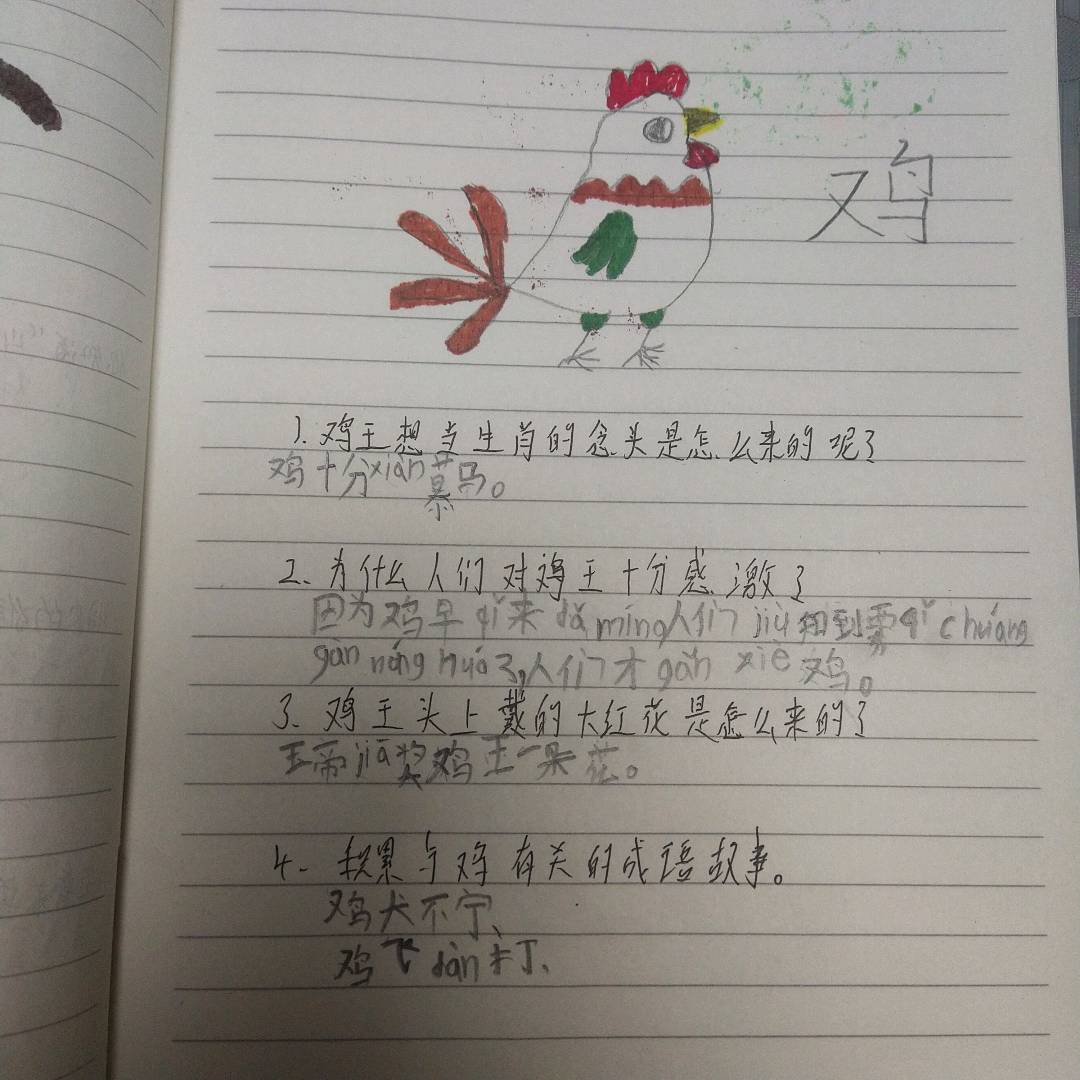 鸡
1. 鸡王想当生肖的念头是怎么来的呢?
鸡十分xiàn慕马。
2、为什么人们对鸡王十分感激?
因为鸡早qǐ来dǎ míng人们jiù知到要qǐ chuáng
gàn nóng huó了,人们才gǎn xiè鸡。
3、鸡王头上戴的大红花是怎么来的?
玉帝jiā奖鸡王一朵花。
4、积累与鸡有关的成语故事。
鸡犬不宁、
鸡飞dàn打、